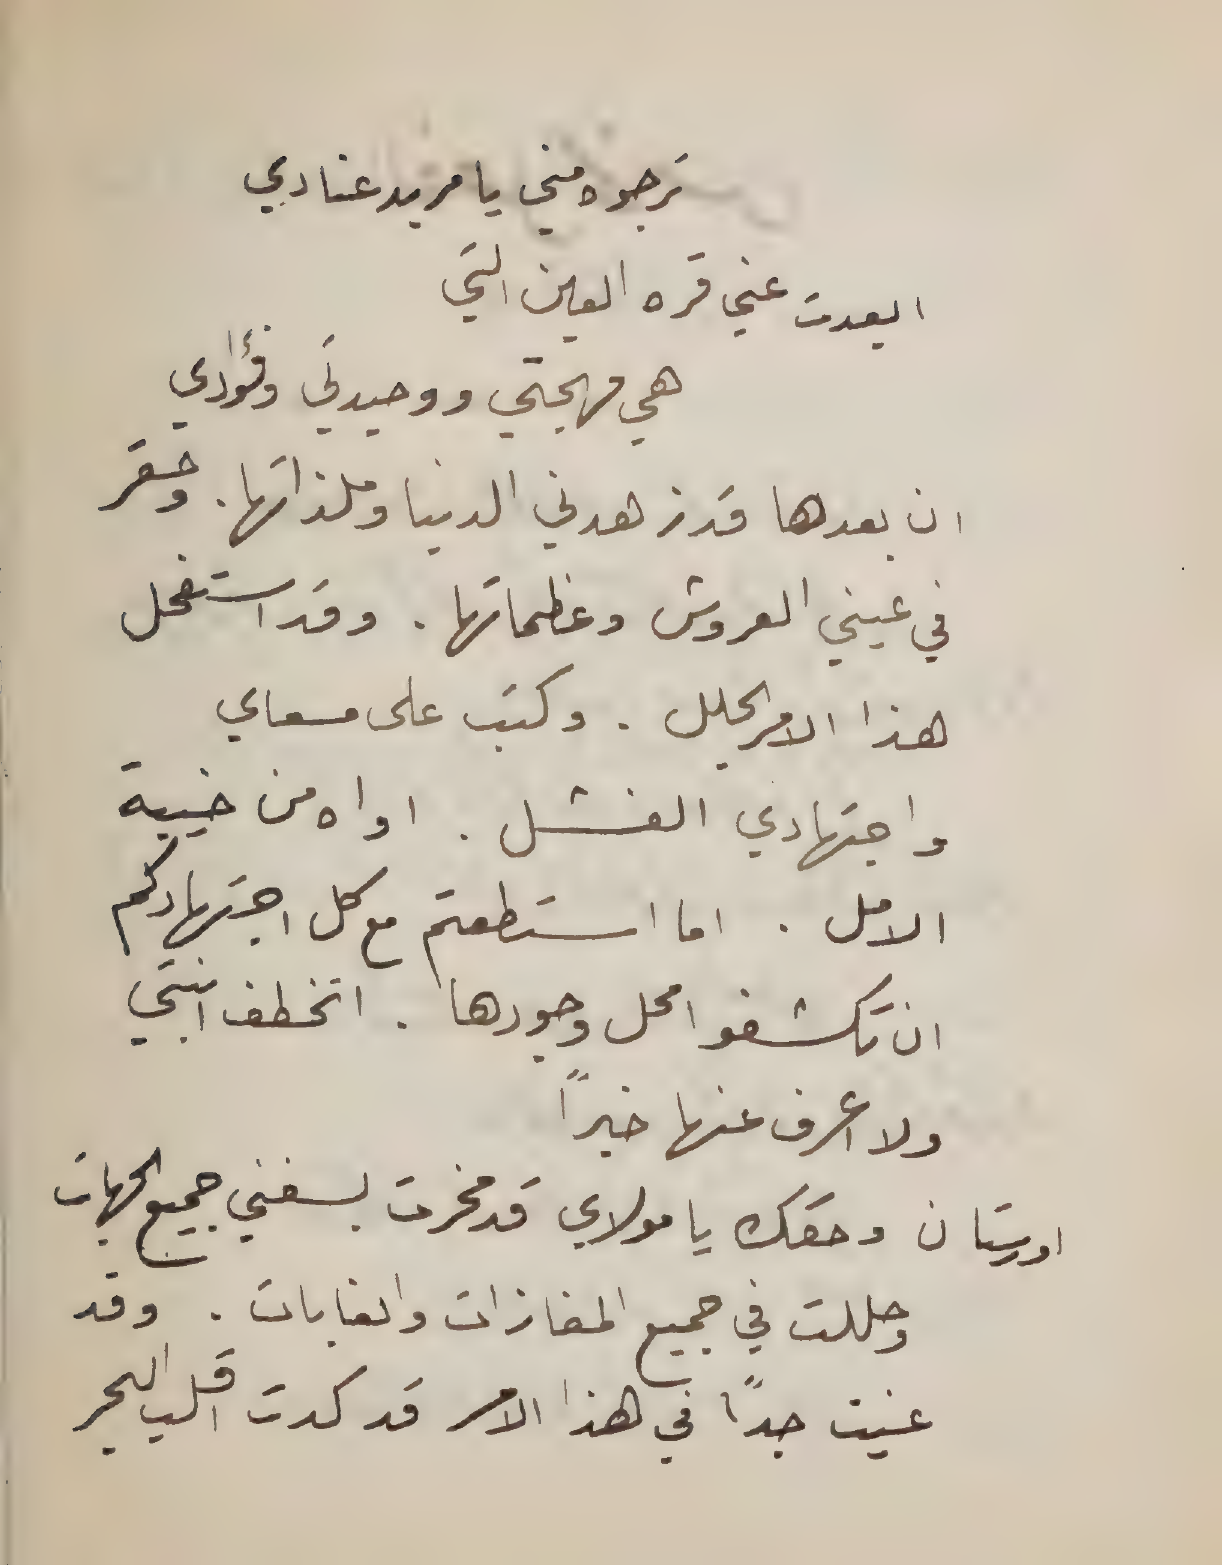 ترجوه مني يا مريد عنادي
ابعدت عني قره العين التي
هي مهجتي ووحيدتي وفؤادي
ان بعدها قد زهدني الدنيا وملذاتها. وحقر
في عيني العروش وعظماتها. وقد استفحل
هذا الامر الجلل. وكتب على مسعاي
واجتهادي الفشل. اواه من خيبة
الامل. اما استطعتم مع كل اجتهادكم
ان تكشفوا محل وجودها. اتخطف ابنتي
ولا اعرف عنها خبراً
اورستان وحقك يا مولاي قد مخرت بسفني جميع الجهات
وحللت في جميع المفازات والغابات. وقد
عنيت جداً في هذا الامر قد كدت اقلب البحر